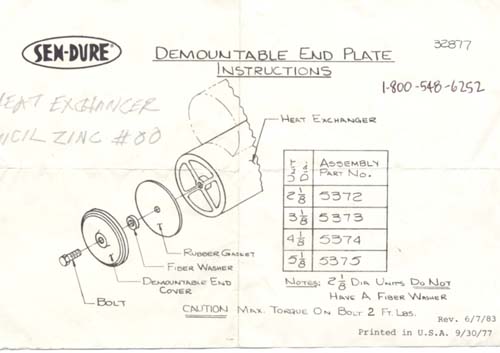 SEN-DURE®
DEMOUNTABLE END PLATE
INSTRUCTIONS
32877
1-800-548-6252
HEAT EXCHANGER
ZINC #00
HEAT EXCHANGER
ASSEMBLY
PART NO.
2 1/8 5372
3 1/8 5373
4 1/8 5374
5 1/8 5375
RUBBER GASKET
FIBER WASHER
DEMOUNTABLE END
COVER
BOLT
NOTES: 2 1/8 DIA UNITS DO NOT
HAVE A FIBER WASHER
CAUTION MAX. TORQUE ON BOLT 2 FT. LBS.
Rev. 6/7/83
Printed in U.S.A. 9/30/77